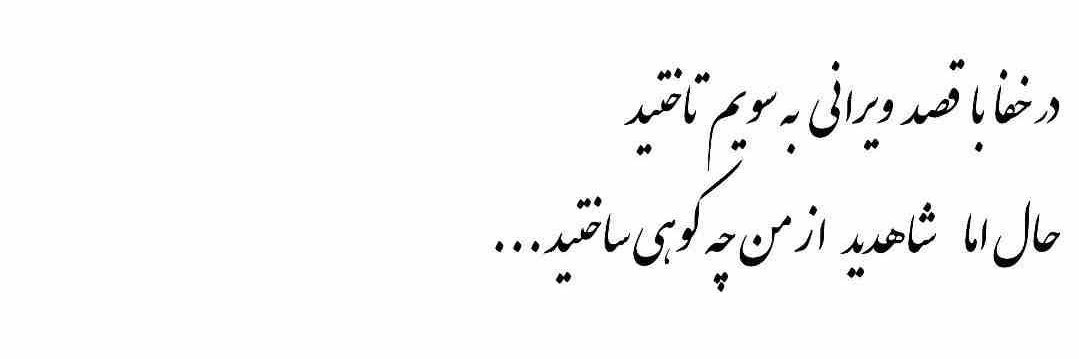 در خفا با قصد ویرانی به سویم تاختید
حال اما شاهدید از من چه کوهی ساختید...